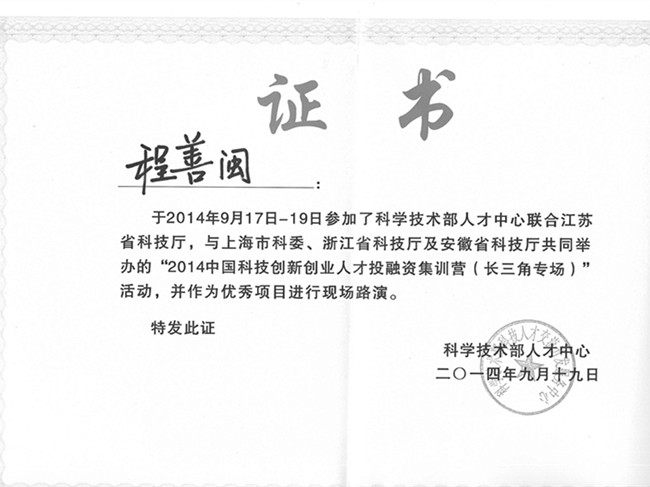 证 书
程善闽：
于2014年9月17日-19日参加了科学技术部人才中心联合江苏
省科技厅，与上海市科委、浙江省科技厅及安徽省科技厅共同举
办的“2014中国科技创新创业人才投融资集训营（长三角专场）”
活动，并作为优秀项目进行现场路演。
特发此证
科学技术部人才中心
二〇一四年九月十九日